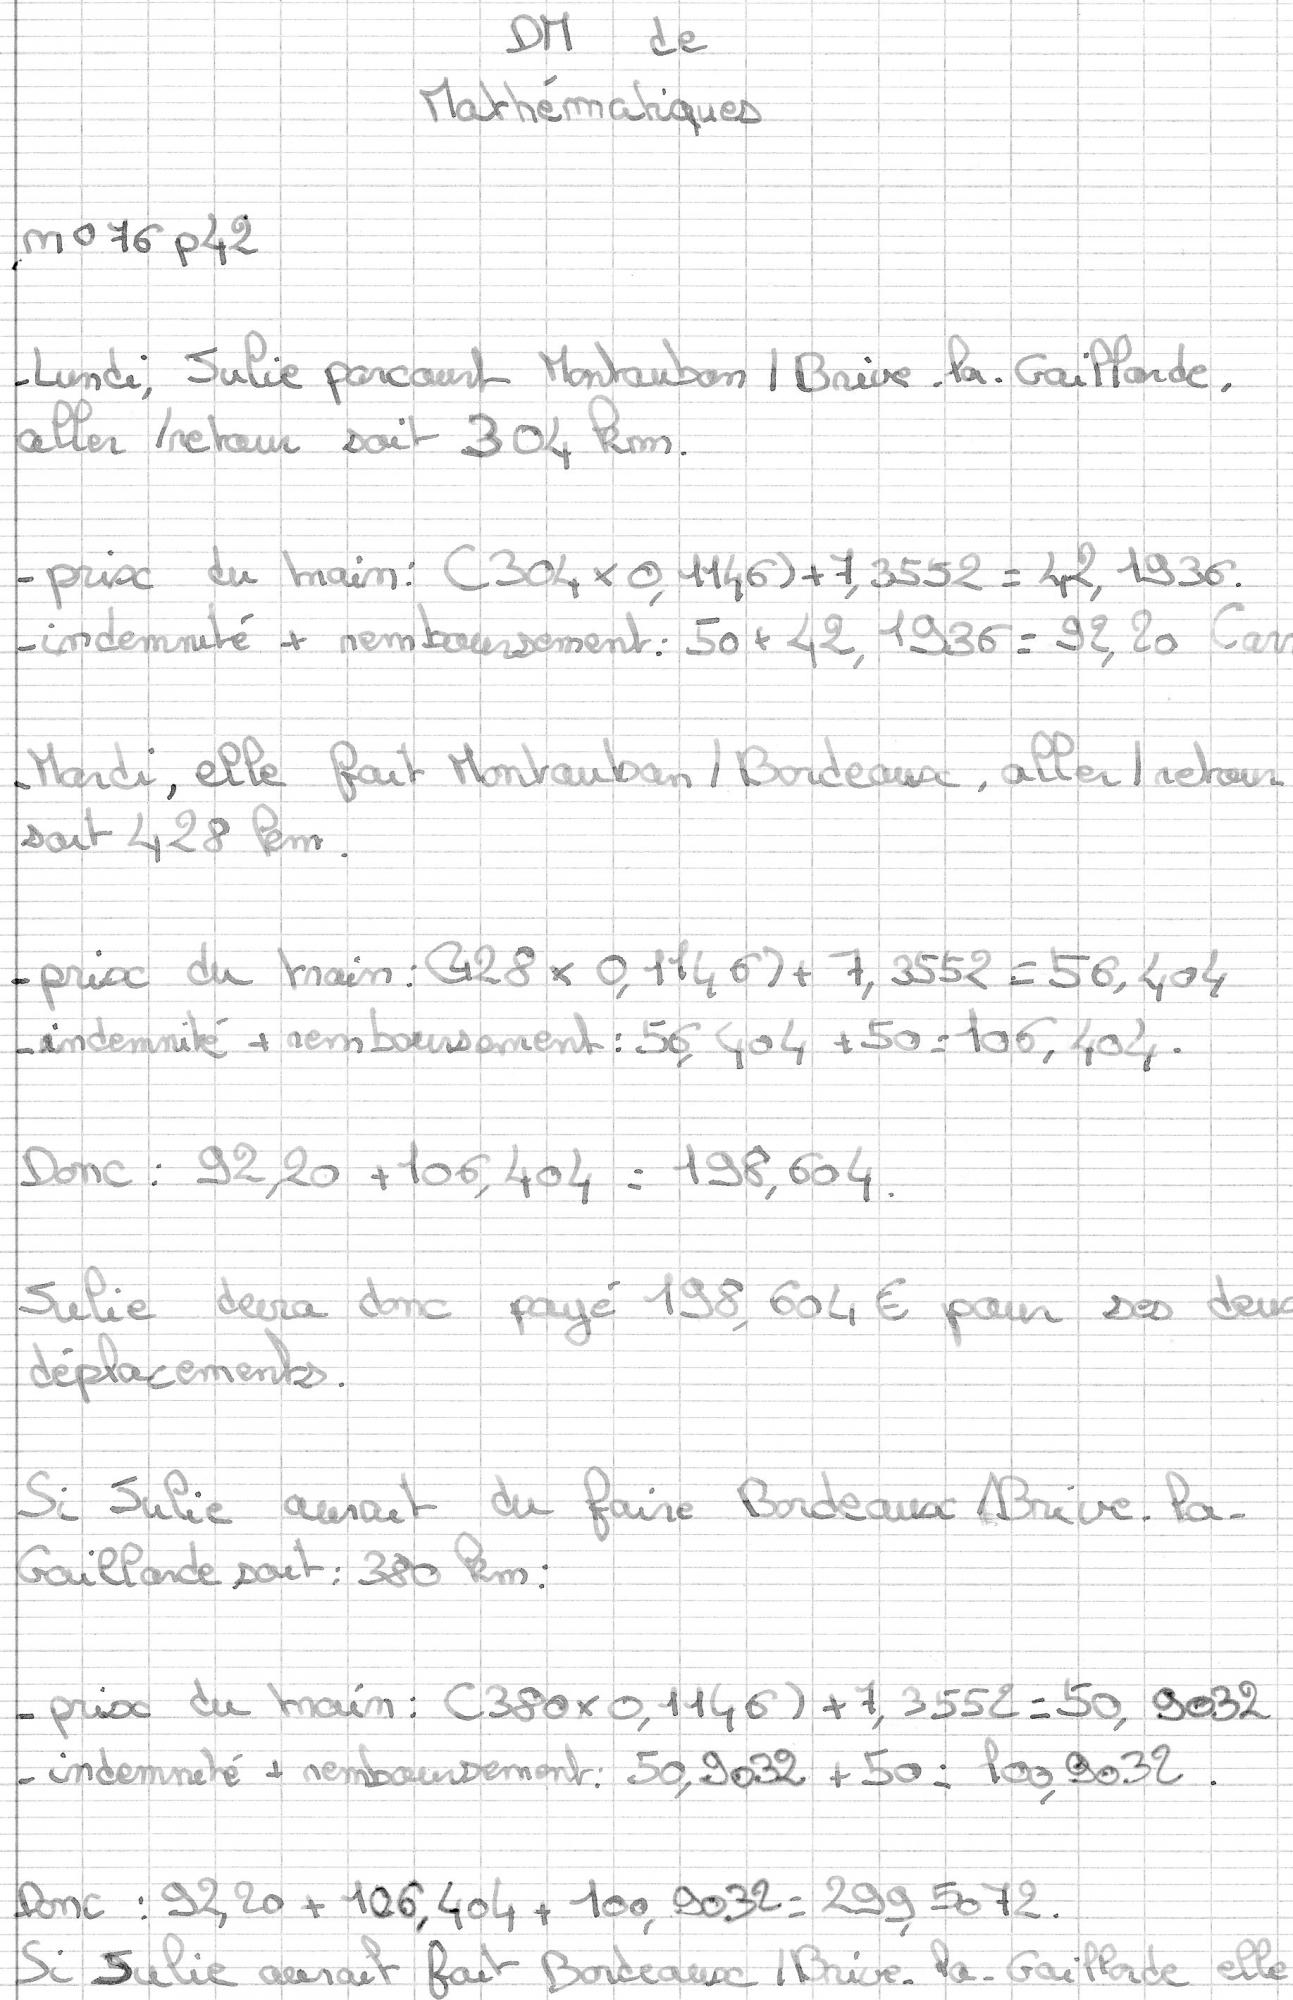 DM de
Mathématiques
n°76 p42
-Lundi, Julie parcourt Montauban / Brive-la-Gaillarde,
aller / retour soit 304 km.
- prix du train: (304 × 0,1146) + 7,3552 = 42,1936.
- indemnité + remboursement: 50 + 42,1936 = 92,20 (arr
-Mardi, elle fait Montauban / Bordeaux, aller / retour
soit 428 km.
- prix du train: (428 × 0,1146) + 7,3552 = 56,404
- indemnité + remboursement: 56,404 + 50 = 106,404.
Donc : 92,20 + 106,404 = 198,604.
Julie devra donc payé 198,604 € pour ses deux
déplacements.
Si Julie aurait du faire Bordeaux / Brive-la-
Gaillarde soit: 380 km:
- prix du train: (380 × 0,1146) + 7,3552 = 50,9032
- indemnité + remboursement: 50,9032 + 50 = 100,9032.
Donc : 92,20 + 106,404 + 100,9032 = 299,5072.
Si Julie aurait fait Bordeaux / Brive-la-Gaillarde elle